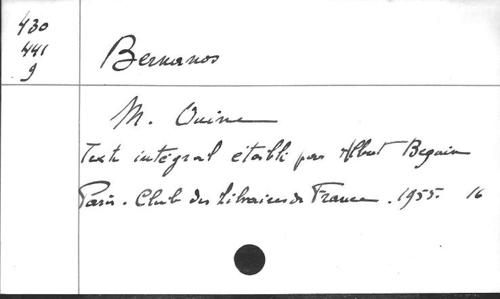 430
441
9
Bernanos
M. Ouine
Texte intégral établi par Albert Beguin
Paris. Club des Libraires de France. 1955. 16